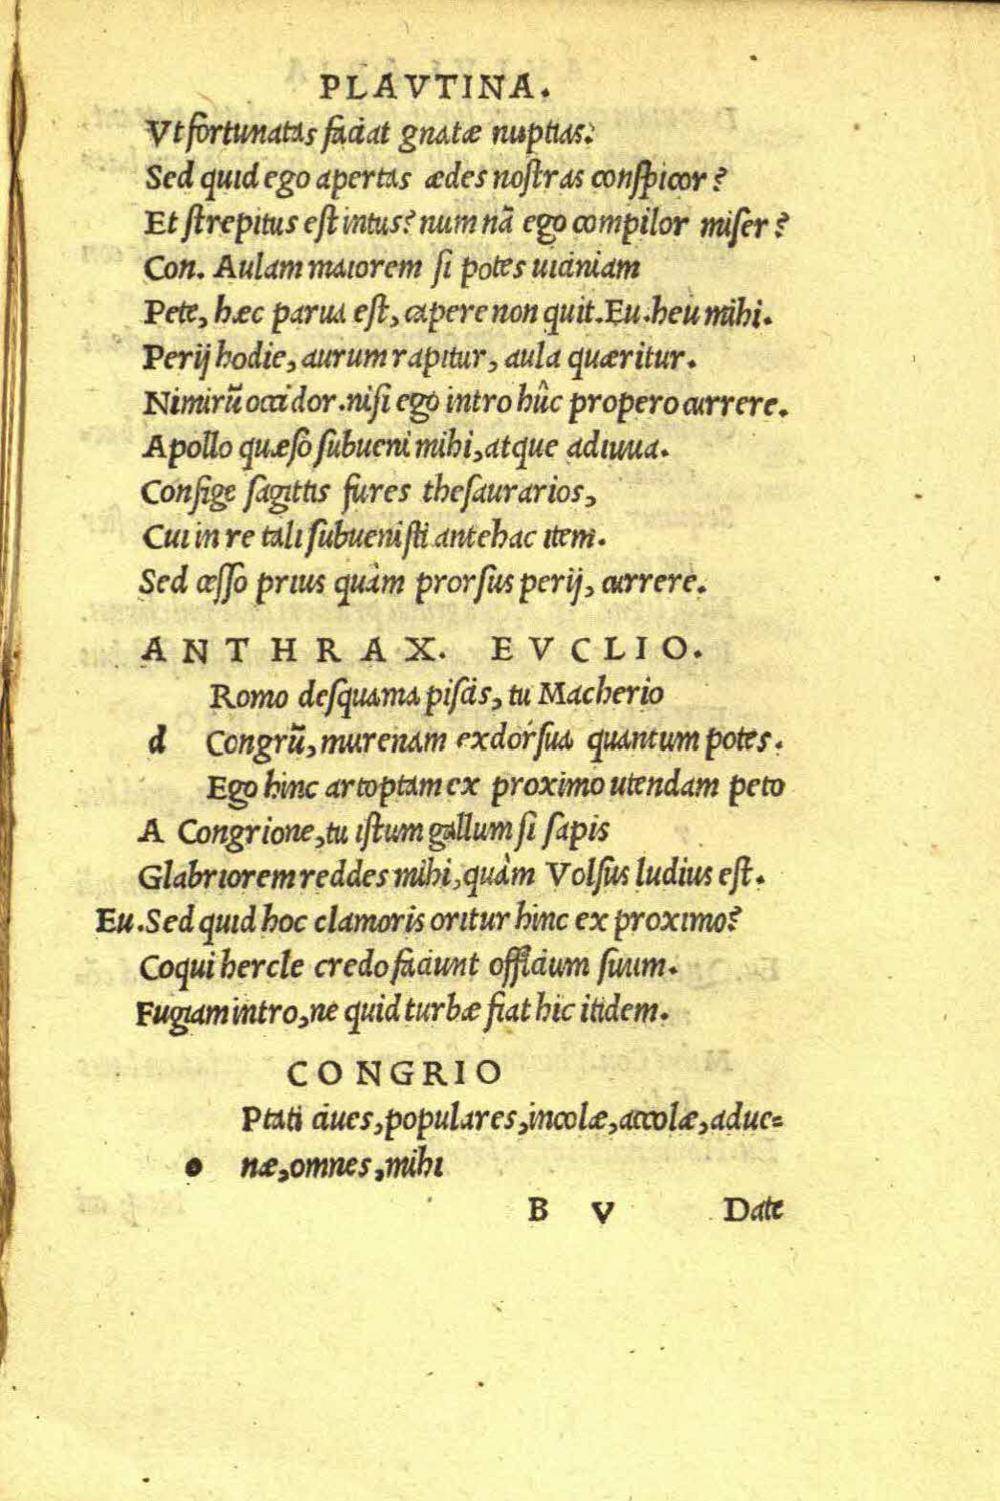 PLAVTINA.
Vt fortunatas faciat gnatæ nuptias.
Sed quid ego apertas ædes nostras conspicor?
Et strepitus est intus? num nā ego compilor miser?
Con. Aulam maiorem si potes uiciniam
Pete, hæc parua est, capere non quit. Eu. heu mihi.
Perij hodie, aurum rapitur, aula quæritur.
Nimirū occidor. nisi ego intro hûc propero currere.
Apollo quæso subueni mihi, atque adiuua.
Confige sagittis fures thesaurarios,
Cui in re tali subuenisti antehac item.
Sed cesso prius quàm prorsus perij, currere.
ANTHRAX. EVCLIO.
Romo desquama piscis, tu Macherio
d Congrū, murenam exdórsua quantum potes.
Ego hinc artoptam ex proximo utendam peto
A Congrione, tu istum gallum si sapis
Glabriorem reddes mihi, quàm Volsus ludius est.
Eu. Sed quid hoc clamoris oritur hinc ex proximo?
Coqui hercle credo faciunt officium suum.
Fugiam intro, ne quid turbæ fiat hic itidem.
CONGRIO
Ptati ciues, populares, incolæ, accolæ, adue=
o næ, omnes, mihi
B V Date